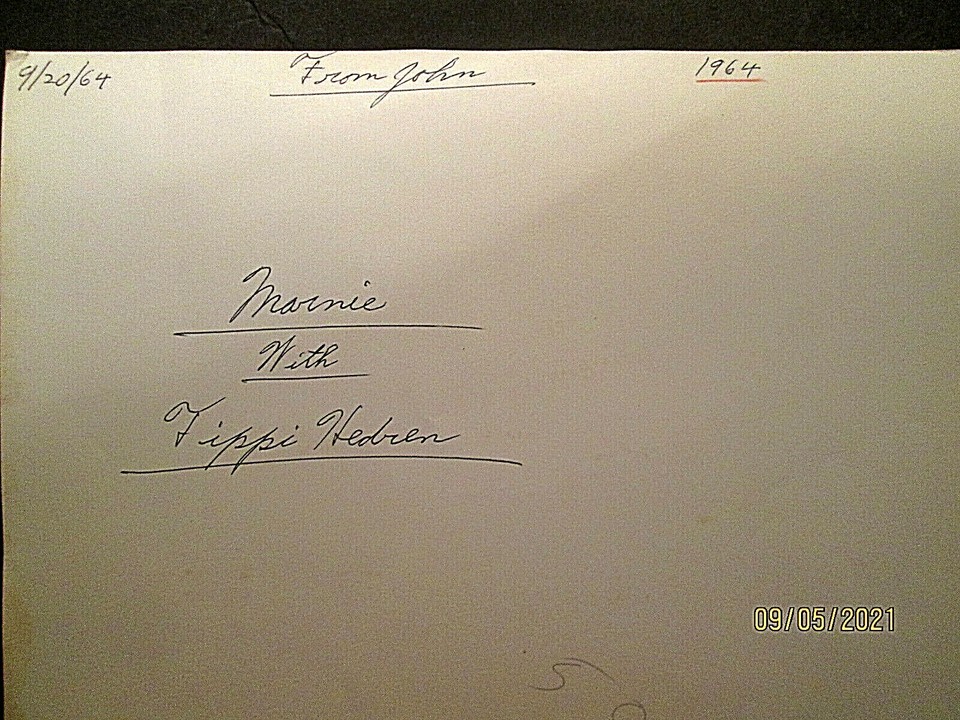 9/20/64 From John 1964
Marnie
With
Tippi Hedren
09/05/2021
5